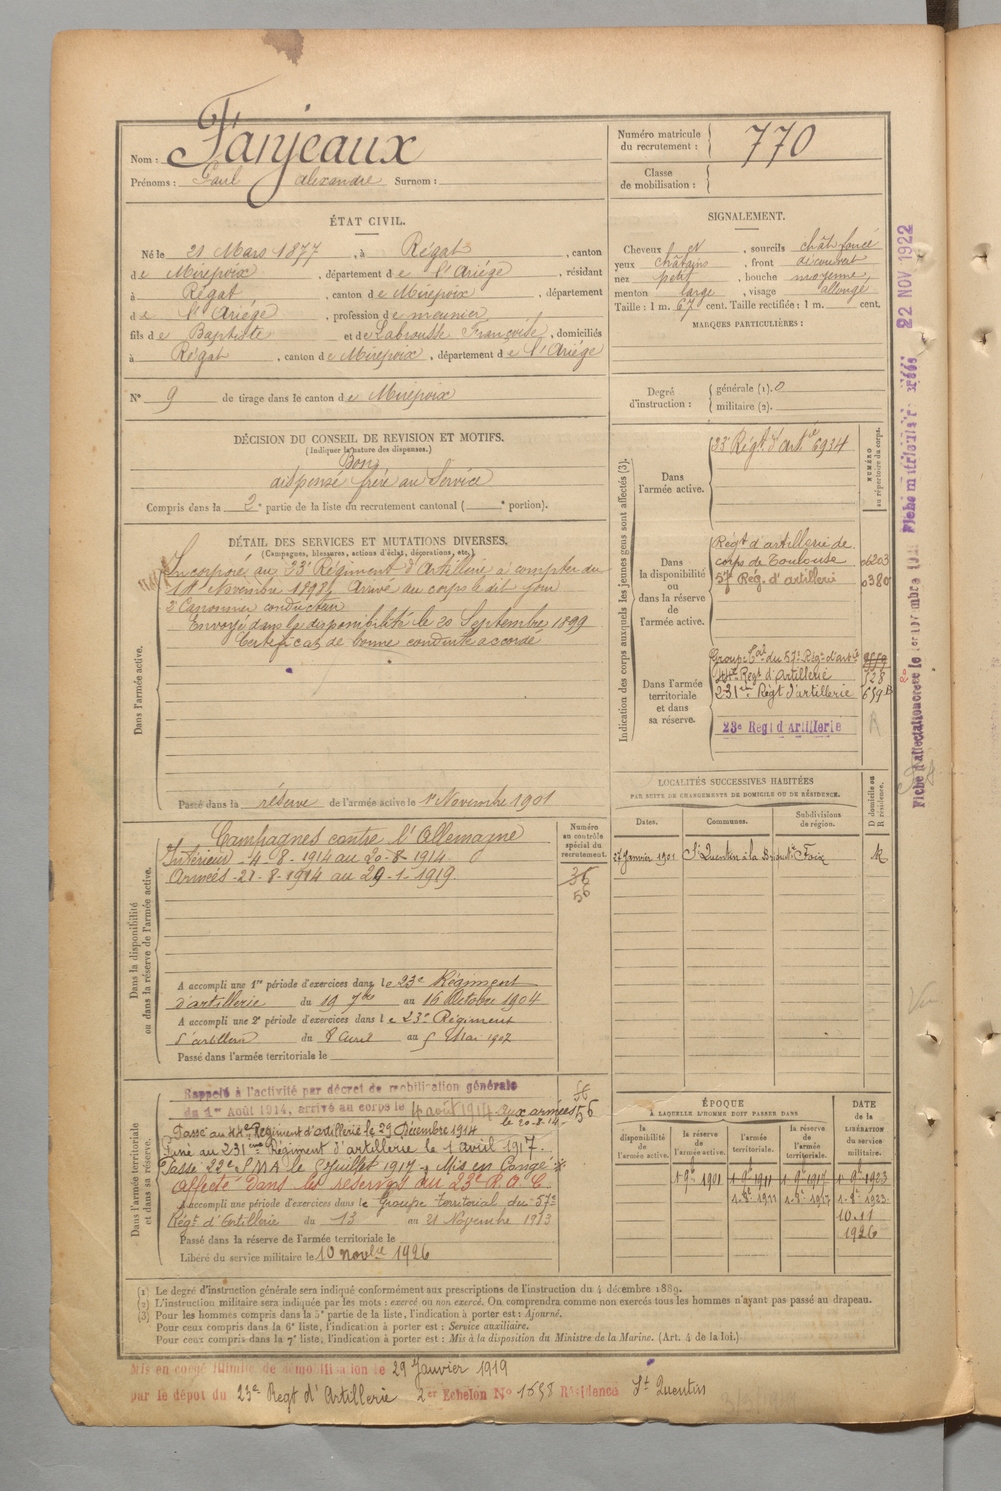 Nom : Fanjeaux
Prénoms : Paul Alexandre Surnom :
Numéro matricule du recrutement : 770
Classe de mobilisation :
ÉTAT CIVIL.
Né le 21 Mars 1877, à Régat, canton
de Mirepoix, département de l'Ariége, résidant
à Régat, canton de Mirepoix, département
de l'Ariége, profession de meunier,
fils de Baptiste et de Labrousse Françoise, domiciliés
à Régat, canton de Mirepoix, département de l'Ariége
N° 9 de tirage dans le canton de Mirepoix
SIGNALEMENT.
Cheveux, sourcils chât. foncé
yeux châtains, front découvert
nez petit, bouche moyenne,
menton large, visage allongé
Taille : 1 m. 67 cent. Taille rectifiée : 1 m. cent.
MARQUES PARTICULIÈRES :
Degré d'instruction : générale (1). 0
militaire (2).
DÉCISION DU CONSEIL DE REVISION ET MOTIFS.
(Indiquer la nature des dispenses.)
Bon
dispensé frère au Service
Compris dans la 2e partie de la liste du recrutement cantonal ( e portion).
DÉTAIL DES SERVICES ET MUTATIONS DIVERSES.
(Campagnes, blessures, actions d'éclat, décorations, etc.)
Dans l'armée active.
Incorporé au 23e Régiment d'Artillerie à compter du
Novembre 1898, Arrivé au corps le dit jour
2e Canonnier conducteur
Envoyé dans la disponibilité le 20 Septembre 1899
Certificat de bonne conduite accordé
Passé dans la réserve de l'armée active le 1er Novembre 1901
Indication des corps auxquels les jeunes gens sont affectés (3).
NUMÉRO au répertoire du corps.
Dans l'armée active.
23e Régt d'Artie 6934
Dans la disponibilité ou dans la réserve de l'armée active.
Régt d'artillerie de
corps de Toulouse 06203
57 Rég. d'artillerie 0380
Dans l'armée territoriale et dans sa réserve.
Group. Cal du 57e Régt d'artie
44e Regt d'Artillerie 528
231e Régt d'artillerie 659
23e Regt d'Artillerie
R
Fiche d'affectation créée le
22 NOV 1922
LOCALITÉS SUCCESSIVES HABITÉES
PAR SUITE DE CHANGEMENTS DE DOMICILE OU DE RÉSIDENCE.
Dates. Communes. Subdivisions de région. D domicile ou R résidence.
27 Janvier 1901 St Quentin à la Foix R
Dans la disponibilité ou dans la réserve de l'armée active.
Numéro au contrôle spécial du recrutement.
Campagnes contre l'Allemagne
Intérieur - 4-8-1914 au 20-8-1914
Armées - 21-8-1914 au 29-1-1919.
36
56
A accompli une 1re période d'exercices dans le 23e Régiment
d'artillerie du 19 7bre au 16 Octobre 1904
A accompli une 2e période d'exercices dans le 23e Régiment
d'artillerie du 8 Avril au 5 Mai 1907
Passé dans l'armée territoriale le
Dans l'armée territoriale et dans sa réserve.
Rappelé à l'activité par décret de mobilisation générale
du 1er Août 1914, arrivé au corps le 4 août 1914 aux armées
le 20-8-14
56
Passé au 44e Régiment d'artillerie le 29 Décembre 1914
Passé au 231ème Régiment d'artillerie le 1 avril 1917.
Passé 22e SMA le 5 Juillet 1917. Mis en Congé
Affecté dans les réserves au 23e R.A.C
A accompli une période d'exercices dans le Groupe territorial du 57e
Régt d'Artillerie du 13 au 21 Novembre 1913
Passé dans la réserve de l'armée territoriale le
Libéré du service militaire le 10 novbre 1926
ÉPOQUE
À LAQUELLE L'HOMME DOIT PASSER DANS
la disponibilité de l'armée active. la réserve de l'armée active. l'armée territoriale. la réserve de l'armée territoriale.
DATE de la LIBÉRATION du service militaire.
1 9e 1901 1 9e 1911 1 9e 1917 1 9e 1923
1 9e 1911 1 9e 1917 1 9e 1923
10.11
1926
(1) Le degré d'instruction générale sera indiqué conformément aux prescriptions de l'instruction du 4 décembre 1889.
(2) L'instruction militaire sera indiquée par les mots : exercé ou non exercé. On comprendra comme non exercés tous les hommes n'ayant pas passé au drapeau.
(3) Pour les hommes compris dans la 5e partie de la liste, l'indication à porter est : Ajourné.
Pour ceux compris dans la 6e liste, l'indication à porter est : Service auxiliaire.
Pour ceux compris dans la 7e liste, l'indication à porter est : Mis à la disposition du Ministre de la Marine. (Art. 4 de la loi.)
Mis en congé illimité de démobilisation le 29 Janvier 1919
par le dépôt du 23e Regt d'Artillerie 2er Echelon No 1658 Résidence St Quentin